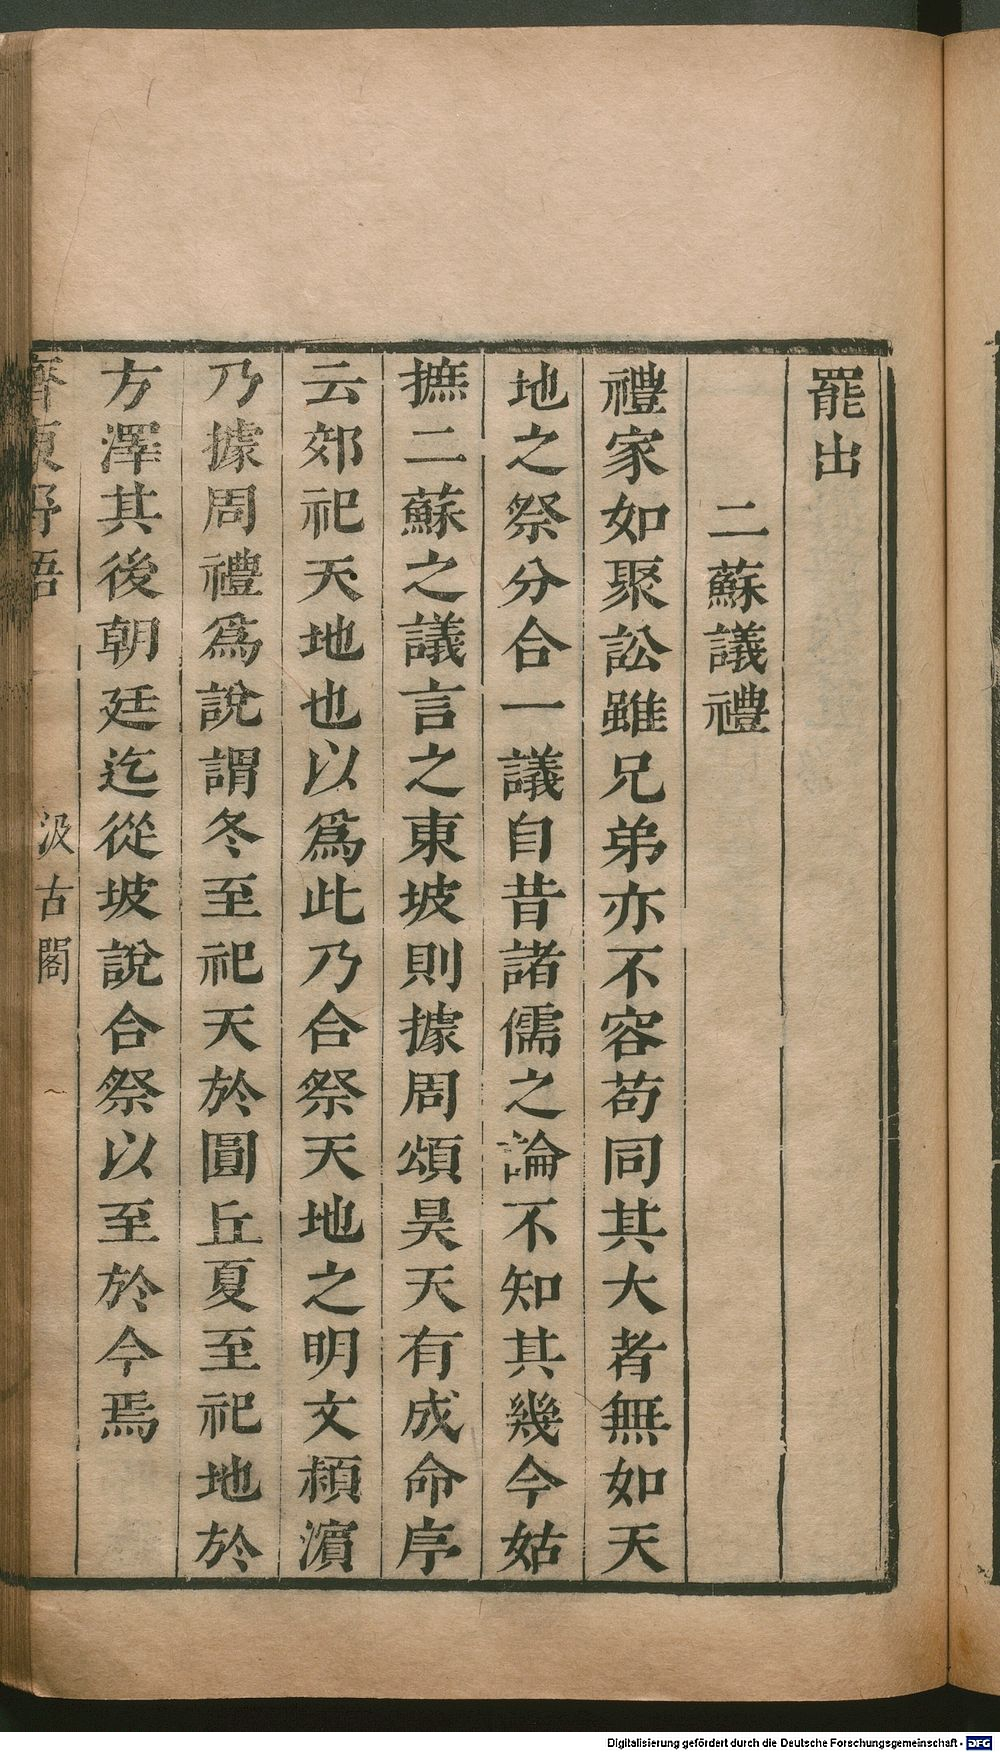 罷出
二蘇議禮
禮家如聚訟雖兄弟亦不容苟同其大者無如天
地之祭分合一議自昔諸儒之論不知其幾今姑
摭二蘇之議言之東坡則據周頌昊天有成命序
云郊祀天地也以爲此乃合祭天地之明文潁濵
乃據周禮爲說謂冬至祀天於圓丘夏至祀地於
方澤其後朝廷迄從坡說合祭以至於今焉
齊東野語
汲古閣
Digitalisierung gefördert durch die Deutsche Forschungsgemeinschaft - DFG